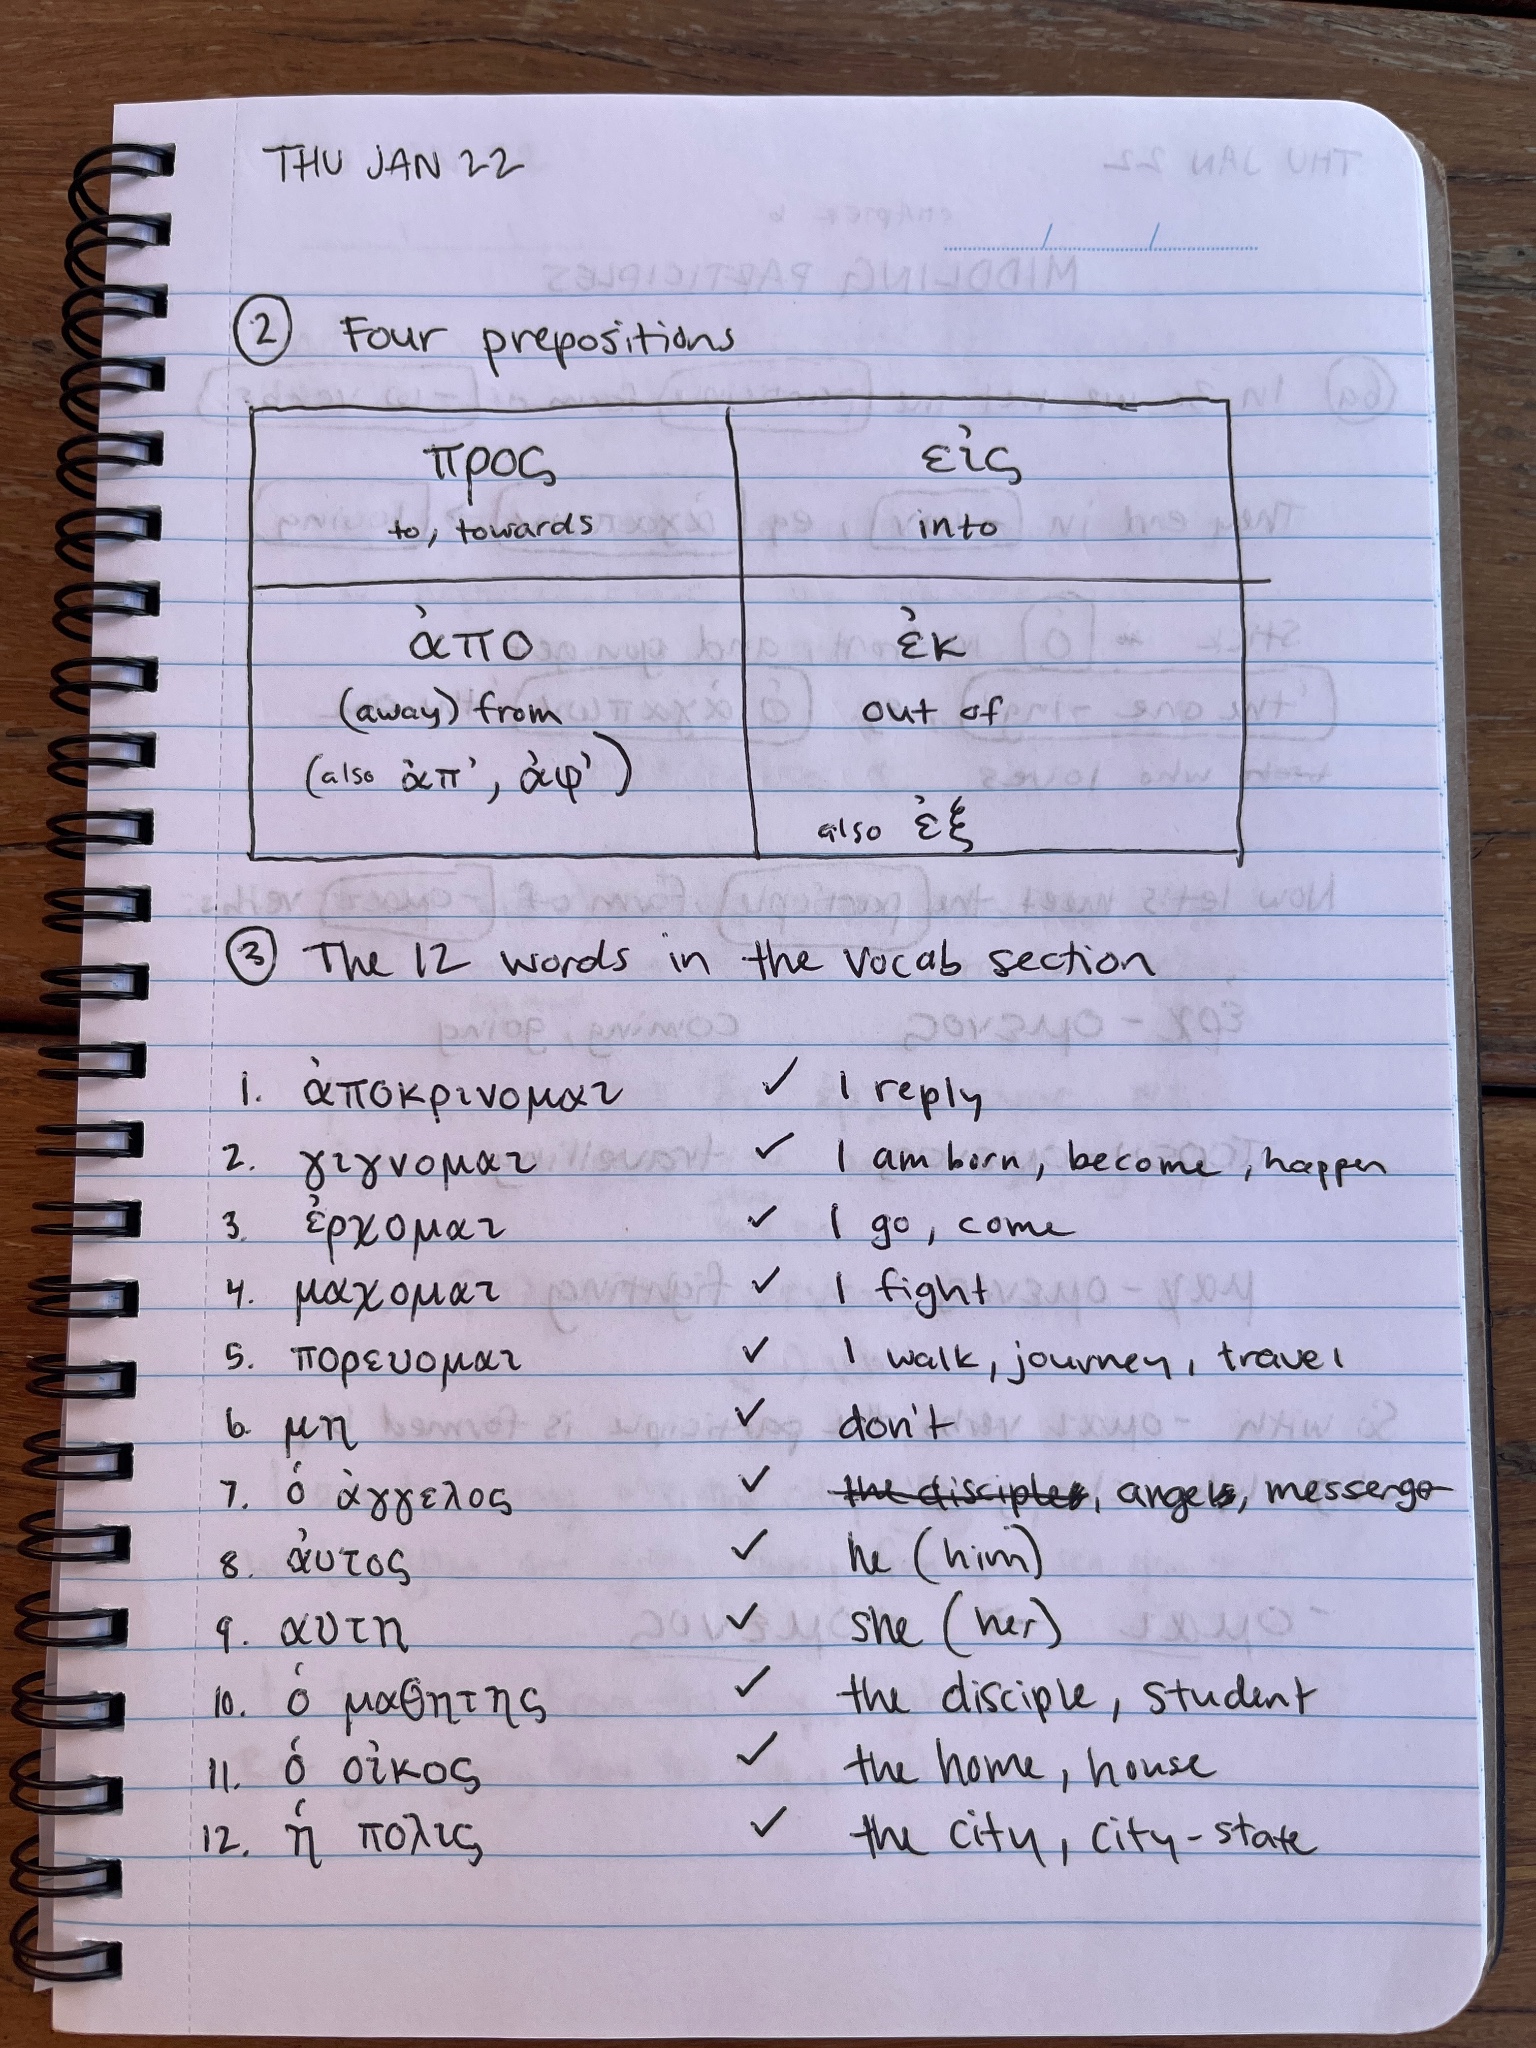 THU JAN 22
2 Four prepositions
προς εἰς
to, towards into
ἀπο ἐκ
(away) from out of
(also ἀπ', ἀφ')
also ἐξ
3 The 12 words in the vocab section
1. ἀποκρινομαι ✓ I reply
2. γιγνομαι ✓ I am born, become, happen
3. ἐρχομαι ✓ I go, come
4. μαχομαι ✓ I fight
5. πορευομαι ✓ I walk, journey, travel
6. μη ✓ don't
7. ὁ ἀγγελος ✓ the disciples, angel, messenger
8. ἀυτος ✓ he (him)
9. αυτη ✓ she (her)
10. ὁ μαθητης ✓ the disciple, student
11. ὁ οἰκος ✓ the home, house
12. ἡ πολις ✓ the city, city-state